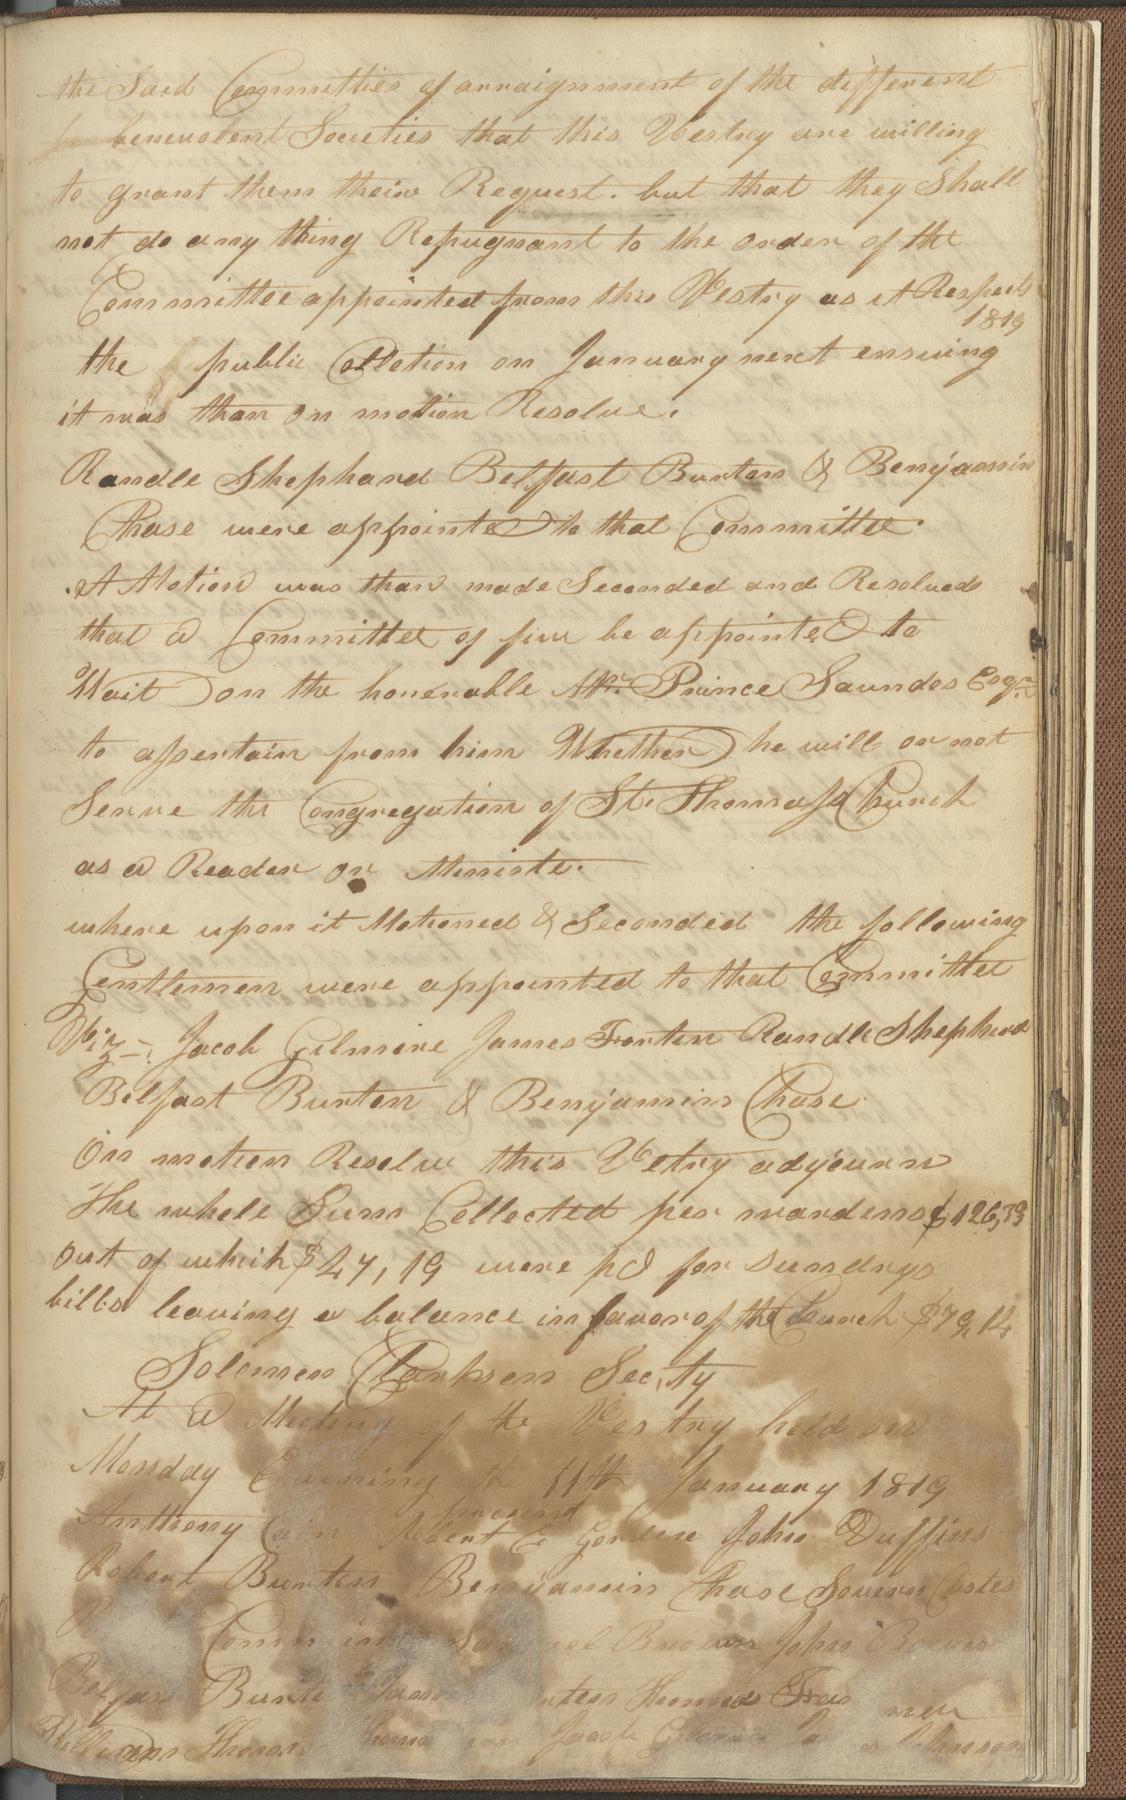 the Said Committies of arraignment of the different
benevolent Societies that this Vestry are willing
to grant them theire Request. but that they Shall
not do any thing Repugnant to the order of the
Committee appointed from this Vestry as it Respects
1819
the public Collotion on January next ensuing
it was than on motion Resolve.
Randle Shephard Belfast Burton & Benjamin
Chase were appointed to that Committee.
A Motion was than made Seconded and Resolved
that a Committee of five be appointed to
Wait on the honerable Mr. Prince Saundos Esqr.
to assertain from him Whether he will or not
Serve the Congregation of St. Thomass Church
as a Reader or Ministe.
where upon it Motioned & Seconded the following
Gentlemen were appointed to that Committee
Viz. Jacob Gilmore James Forten Randle Shepherd
Belfast Burton & Benjamin Chase.
On motion Resolve this Vetry adjourn
The whole Sum Collected per wardens $126,33
out of which $47,19 were pd for Sundrys
bills leaving a balance in favor of the Church $79,14
Solomon Clarkson Sec,ty
At a Meeting of the Vestry held on
Monday Evening the 11th January 1819
present
Anthony Cain Robert C Gordon John Duffins
Robert Burton Benjamin Chase Severn Costes
Brown John Bowers
Belfast Burto
William Thomas Jacob Johnson